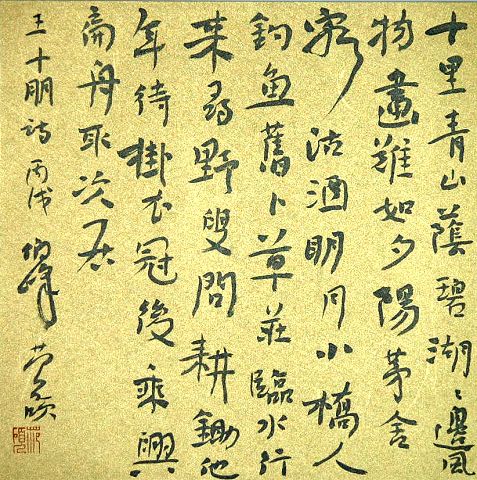 十里青山蔭碧湖〻邊風
物畫難如夕陽茅舍
客沽酒明月小橋人
釣魚舊卜草莊臨水竹
来尋野叟問耕鋤他
年待掛衣冠後乘興
扁舟取次居
王十朋詩 丙戌